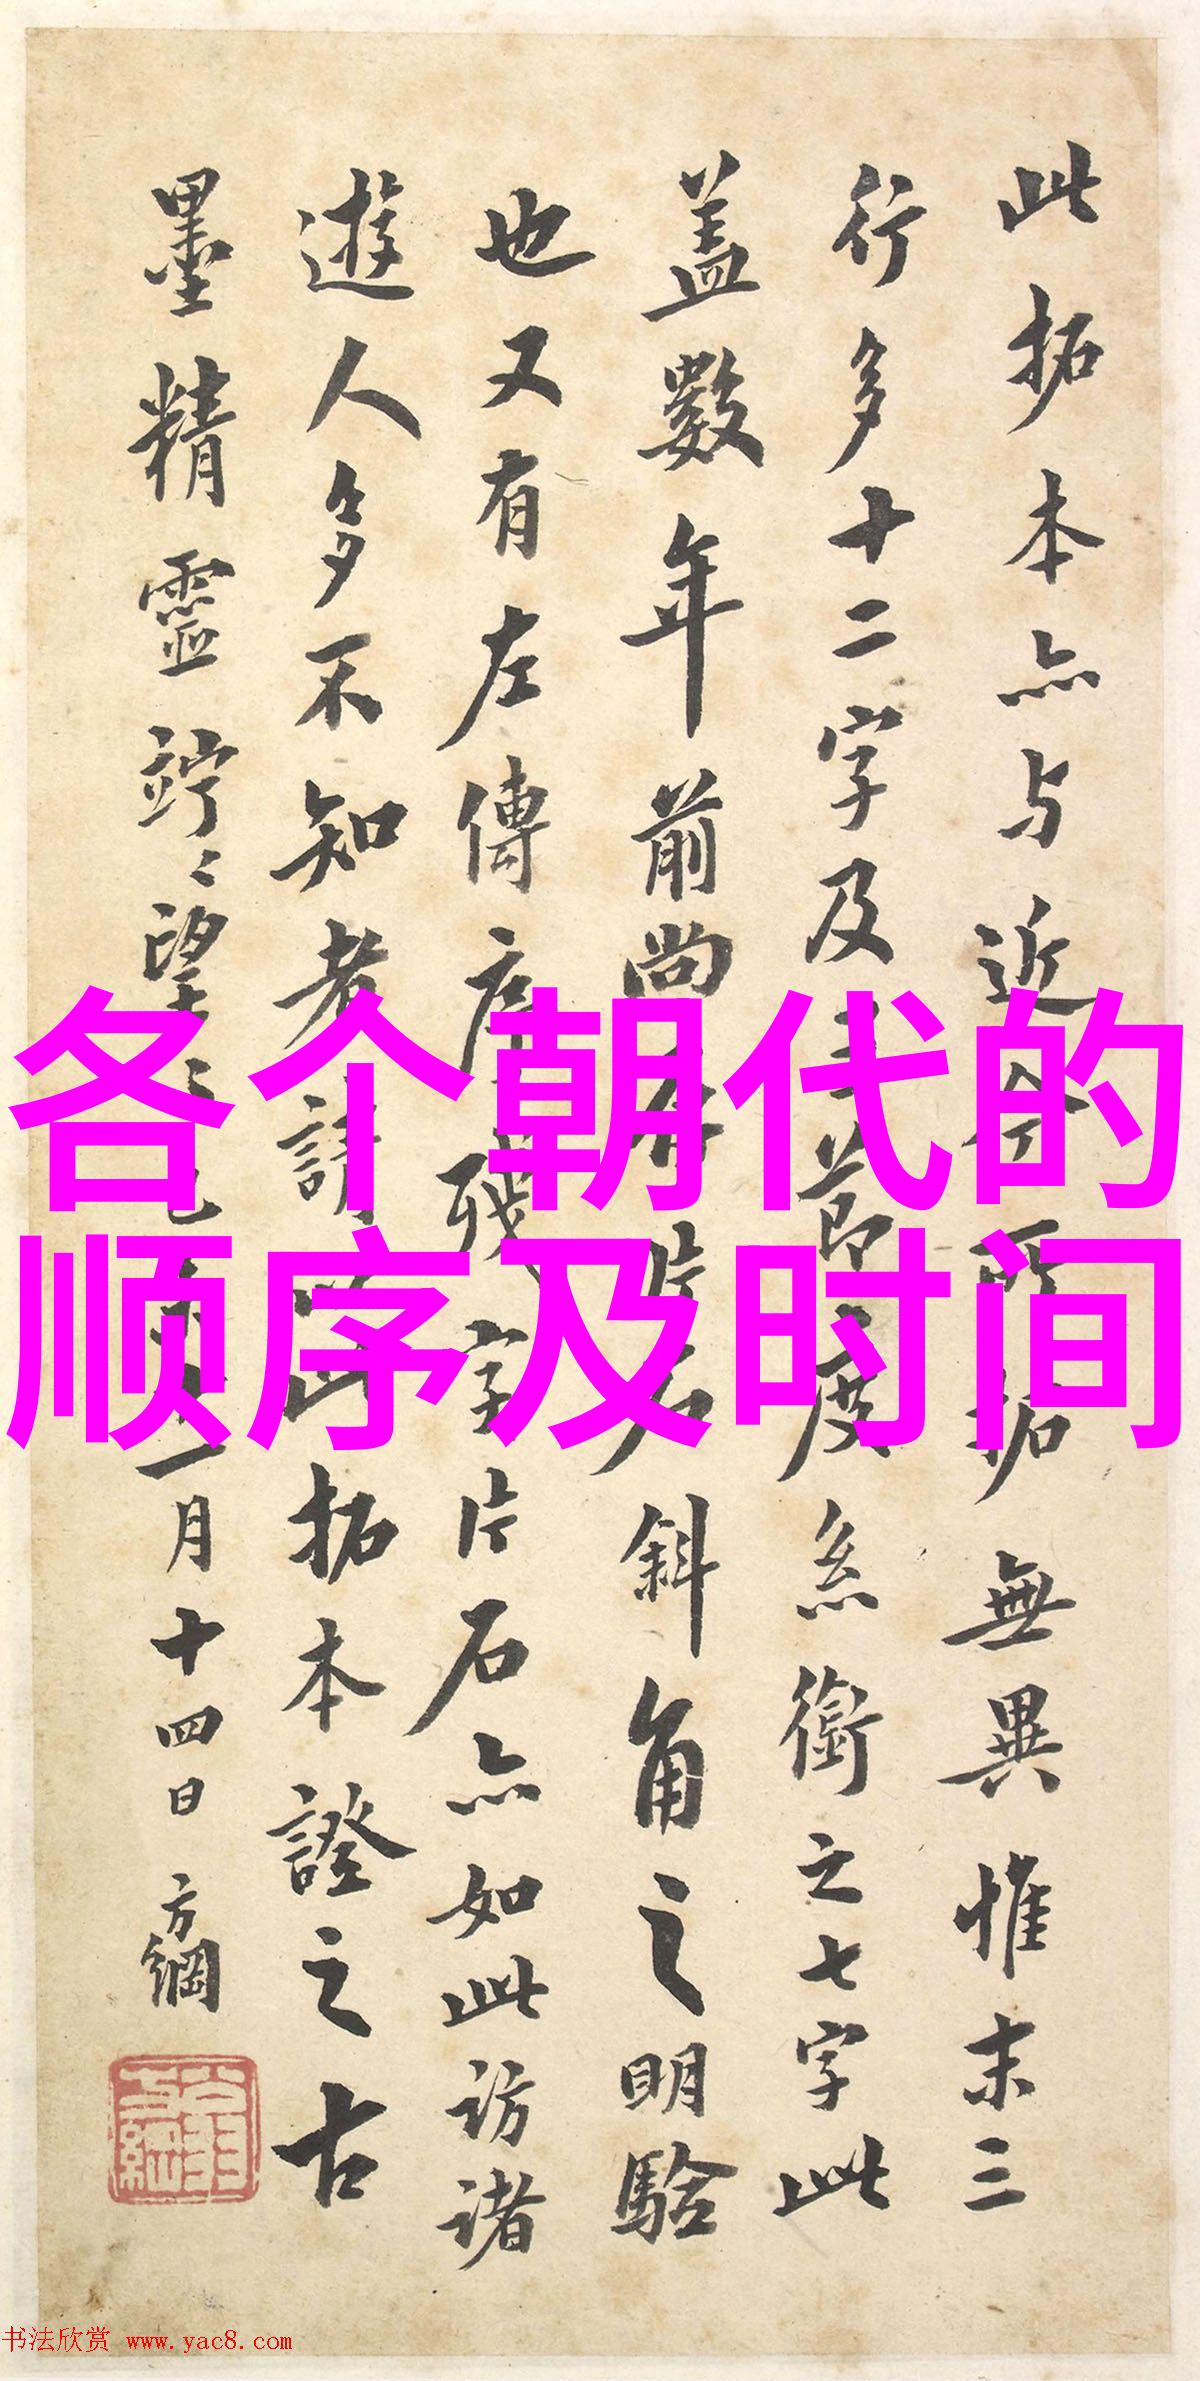 各个朝代的
顺序及时间
此拓本亦与近今所拓無異惟末三
行多十二字及 節度 銜之七字此
蓋數年前尚存 片石斜角之明驗
也又有左傳 殘字片石亦如此訪諸
遊人多不知者 此拓本證之古
墨精靈 望 月十四日方綱
书法欣赏 www.yac8.com